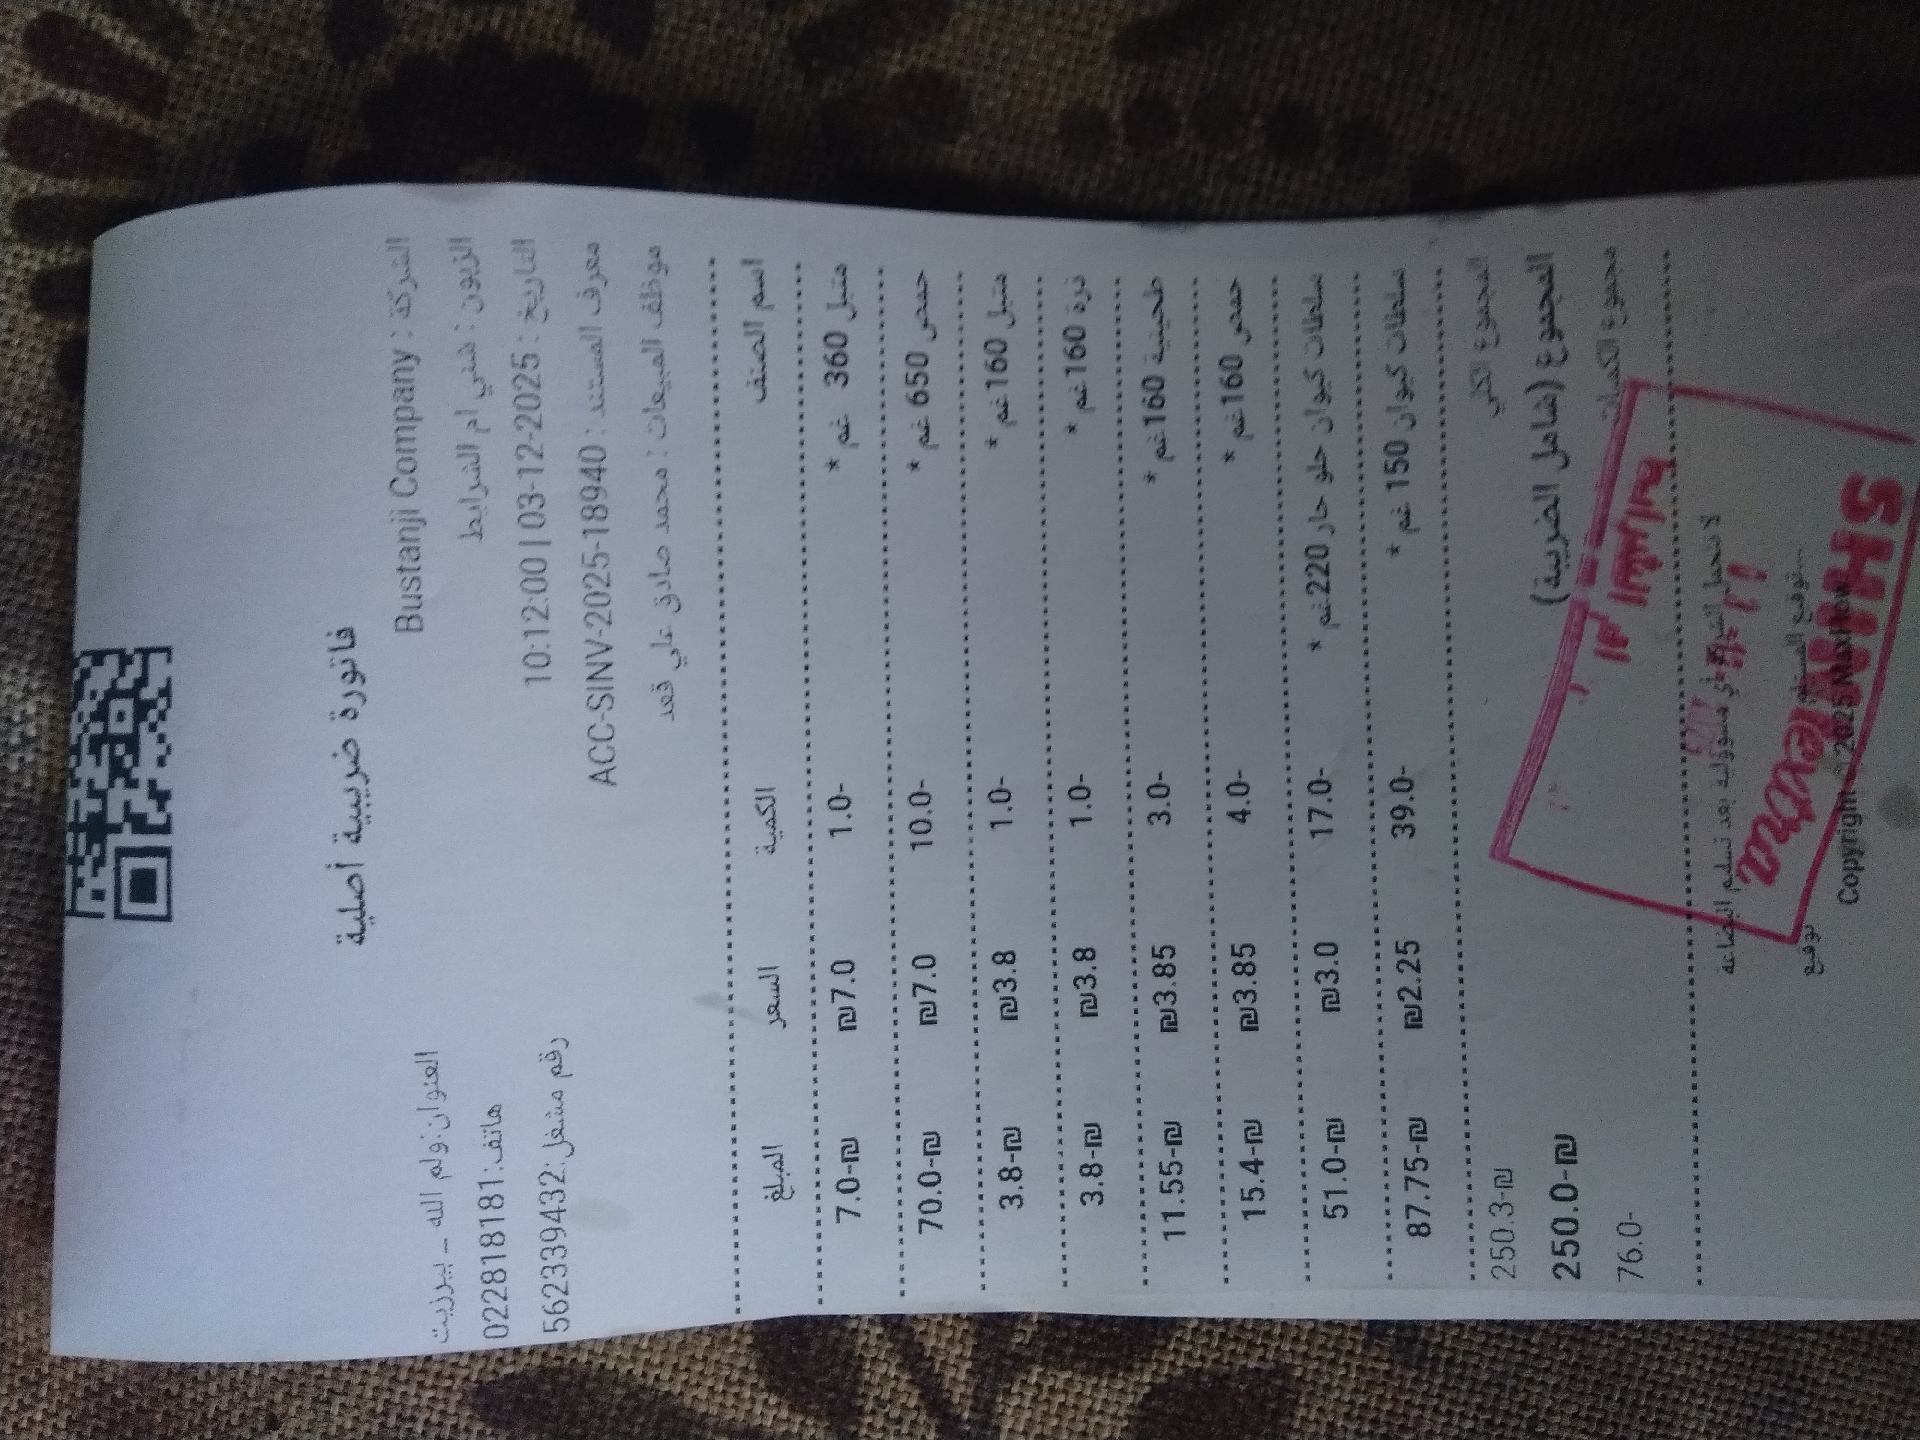 فاتورة ضريبية أصلية
الشركة : Bustanji Company
العنوان: رام الله - بيرزيت
الزبون : شني ام الشرايط
هاتف: 022818181
التاريخ : 2025-12-03 | 10:12:00
رقم مشغل: 562339432
معرف المستند : ACC-SINV-2025-18940
موظف المبيعات : محمد صادق علي قعد
اسم الصنف الكمية السعر المبلغ
متبل 360 غم * 1.0- ₪7.0 7.0-₪
حمص 650 غم * 10.0- ₪7.0 70.0-₪
متبل 160 غم * 1.0- ₪3.8 3.8-₪
ذرة 160 غم * 1.0- ₪3.8 3.8-₪
طحينية 160 غم * 3.0- ₪3.85 11.55-₪
حمص 160 غم * 4.0- ₪3.85 15.4-₪
سلطات كيوان حلو حار 220 غم * 17.0- ₪3.0 51.0-₪
سلطات كيوان 150 غم * 39.0- ₪2.25 87.75-₪
المجموع الكلي 250.3-₪
المجموع (شامل الضريبة) 250.0-₪
مجموع الكميات 76.0-
ام الشرايط
لا تتحمل الشركة أي مسؤولية بعد تسليم البضاعة
توقيع المستلم
توقيع
extra
Copyright © 2025